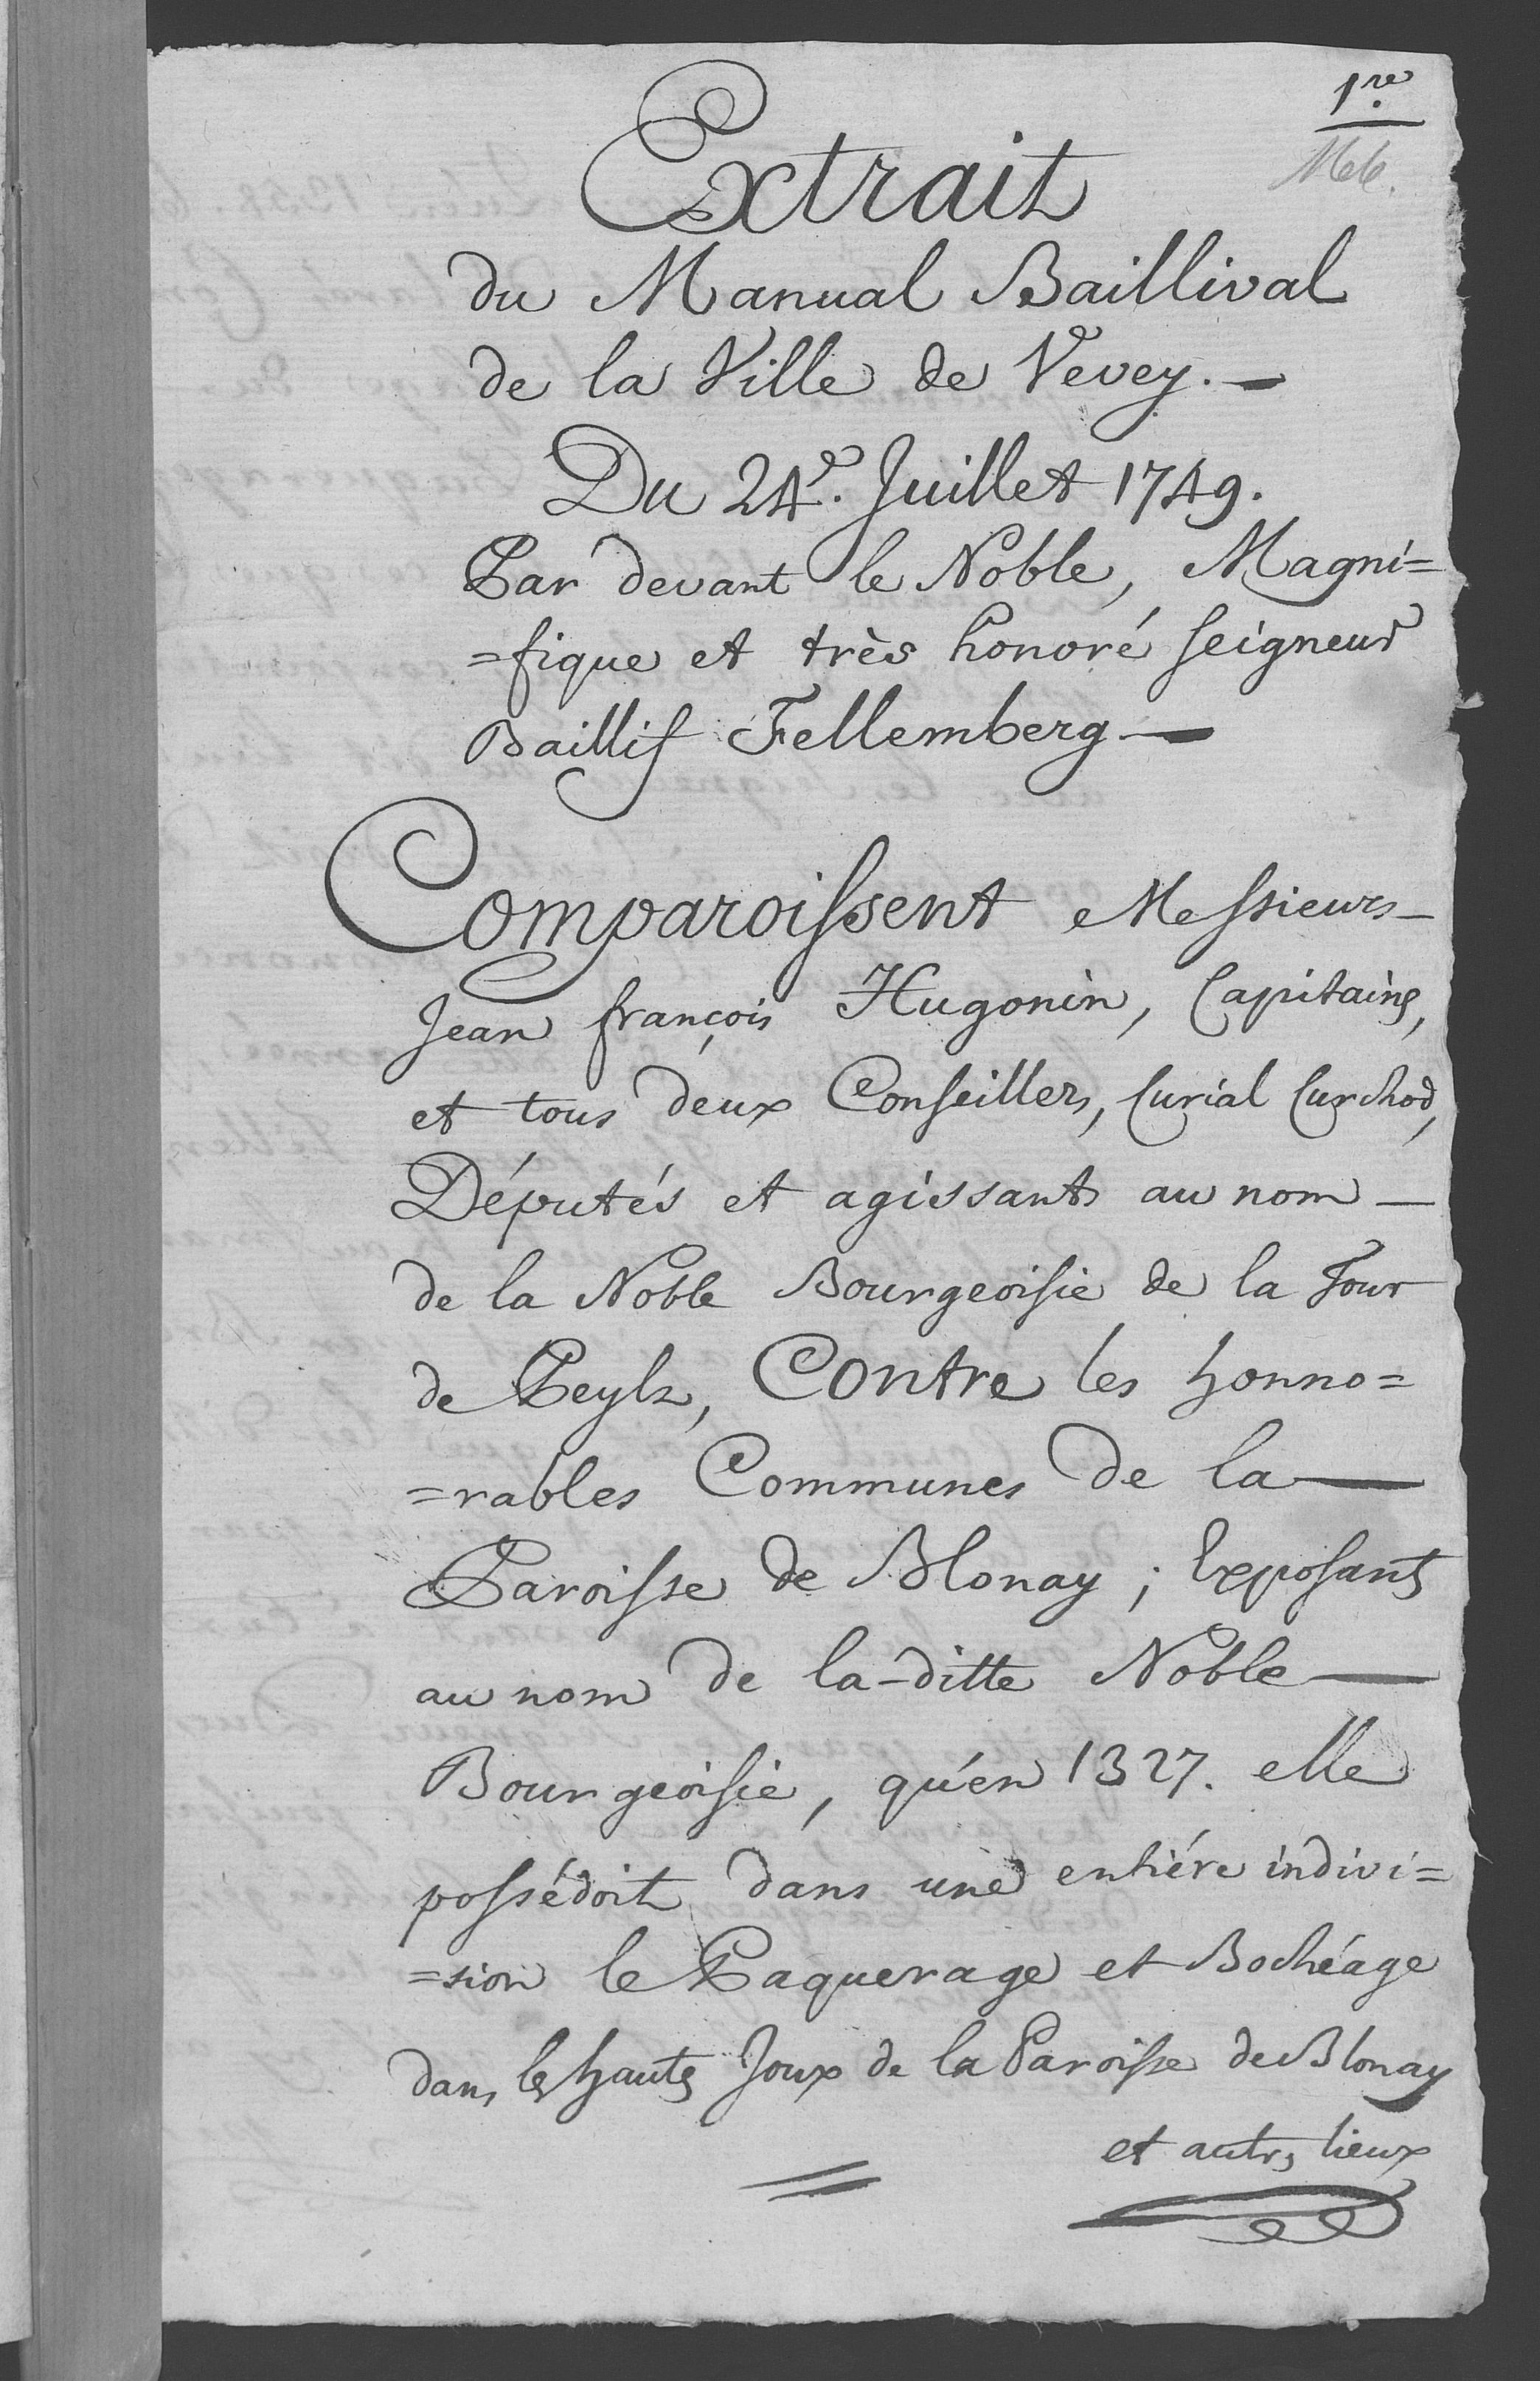 1re.
Extrait
du Manual Baillival
de la Ville de Vevey. —
Du 24e. Juillet 1749.
Par devant le Noble, Magni=
=fique et très honoré seigneur
Baillif Fellemberg —
Comparoissent Messieurs —
Jean françois Hugonin, Capitaine,
et tous deux Conseillers, Curial Curchod,
Députés et agissants au nom —
de la Noble Bourgeoisie de la Tour
de Peylz, Contre les honno=
=rables Communes de la —
Paroisse de Blonay ; Exposants
au nom de la-ditte Noble —
Bourgeoisie, qu'en 1327. elle
possédoit dans une entiére indivi=
=sion le Paquerage et Bochéage
dans les hautes Joux de la Paroisse de Blonay
et autres lieux